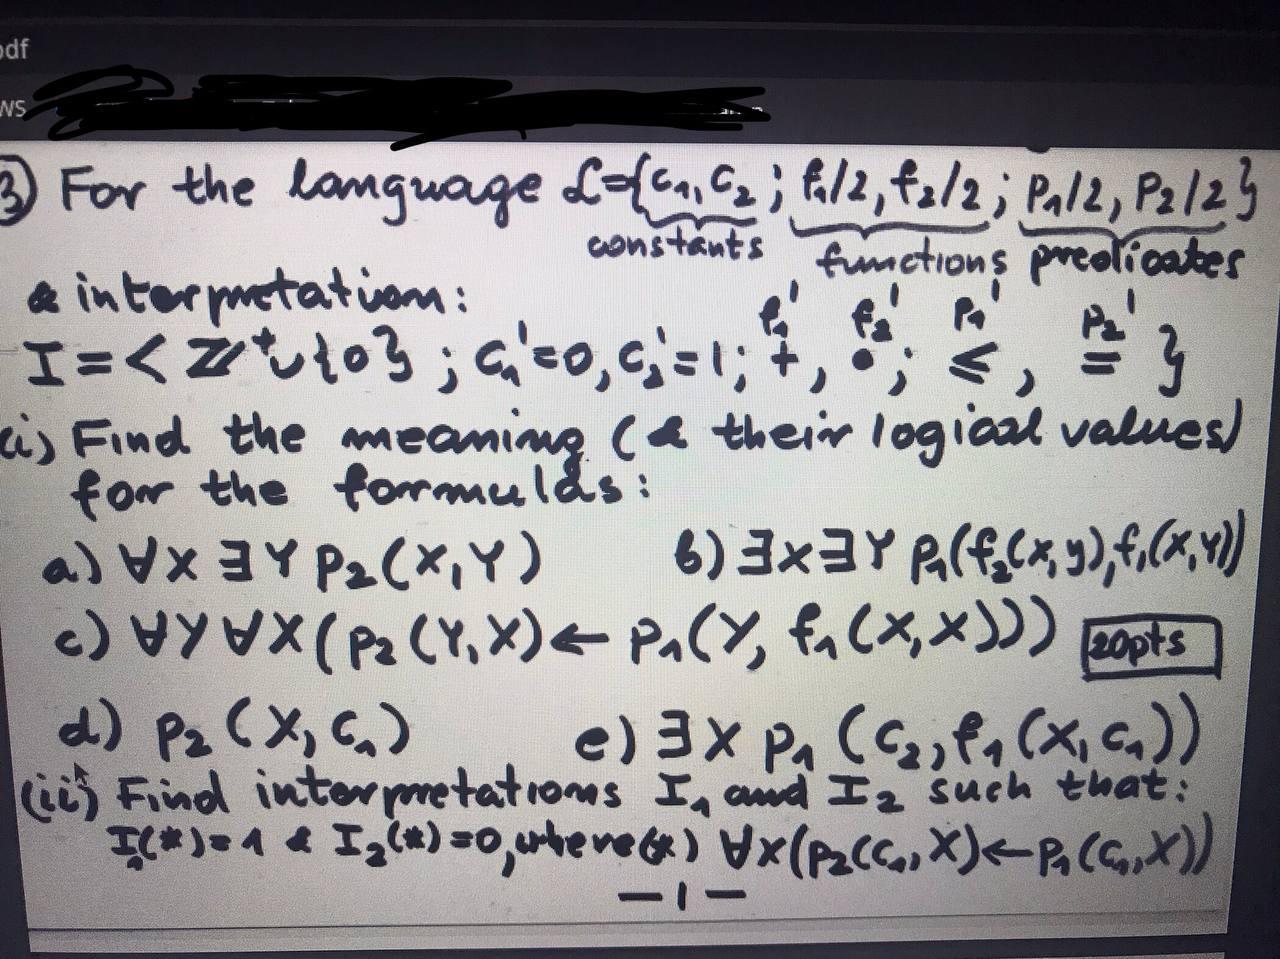 pdf
ws
3) For the language ℒ={c₁, c₂ ; f₁/2, f₂/2 ; p₁/2, p₂/2}
constants functions predicates
& interpretation:
f₁' f₂' p₁' p₂'
I = < ℤ⁺∪{0} ; c₁'=0, c₂'=1 ; +, • ; ≤, = }
(i) Find the meaning (& their logical values)
for the formulas:
a) ∀x ∃Y p₂(X,Y) b) ∃x∃Y p₁(f₂(x,y),f₁(X,Y))
c) ∀Y ∀X (p₂(Y,X) ← p₁(Y, f₁(X,X))) 20pts
d) p₂(X, c₁) e) ∃X p₁(c₂, f₁(X, c₁))
(ii) Find interpretations I₁ and I₂ such that:
I₁(*)=1 & I₂(*)=0, where (*) ∀X(p₂(c₁,X)←p₁(c₁,X))
— 1 —